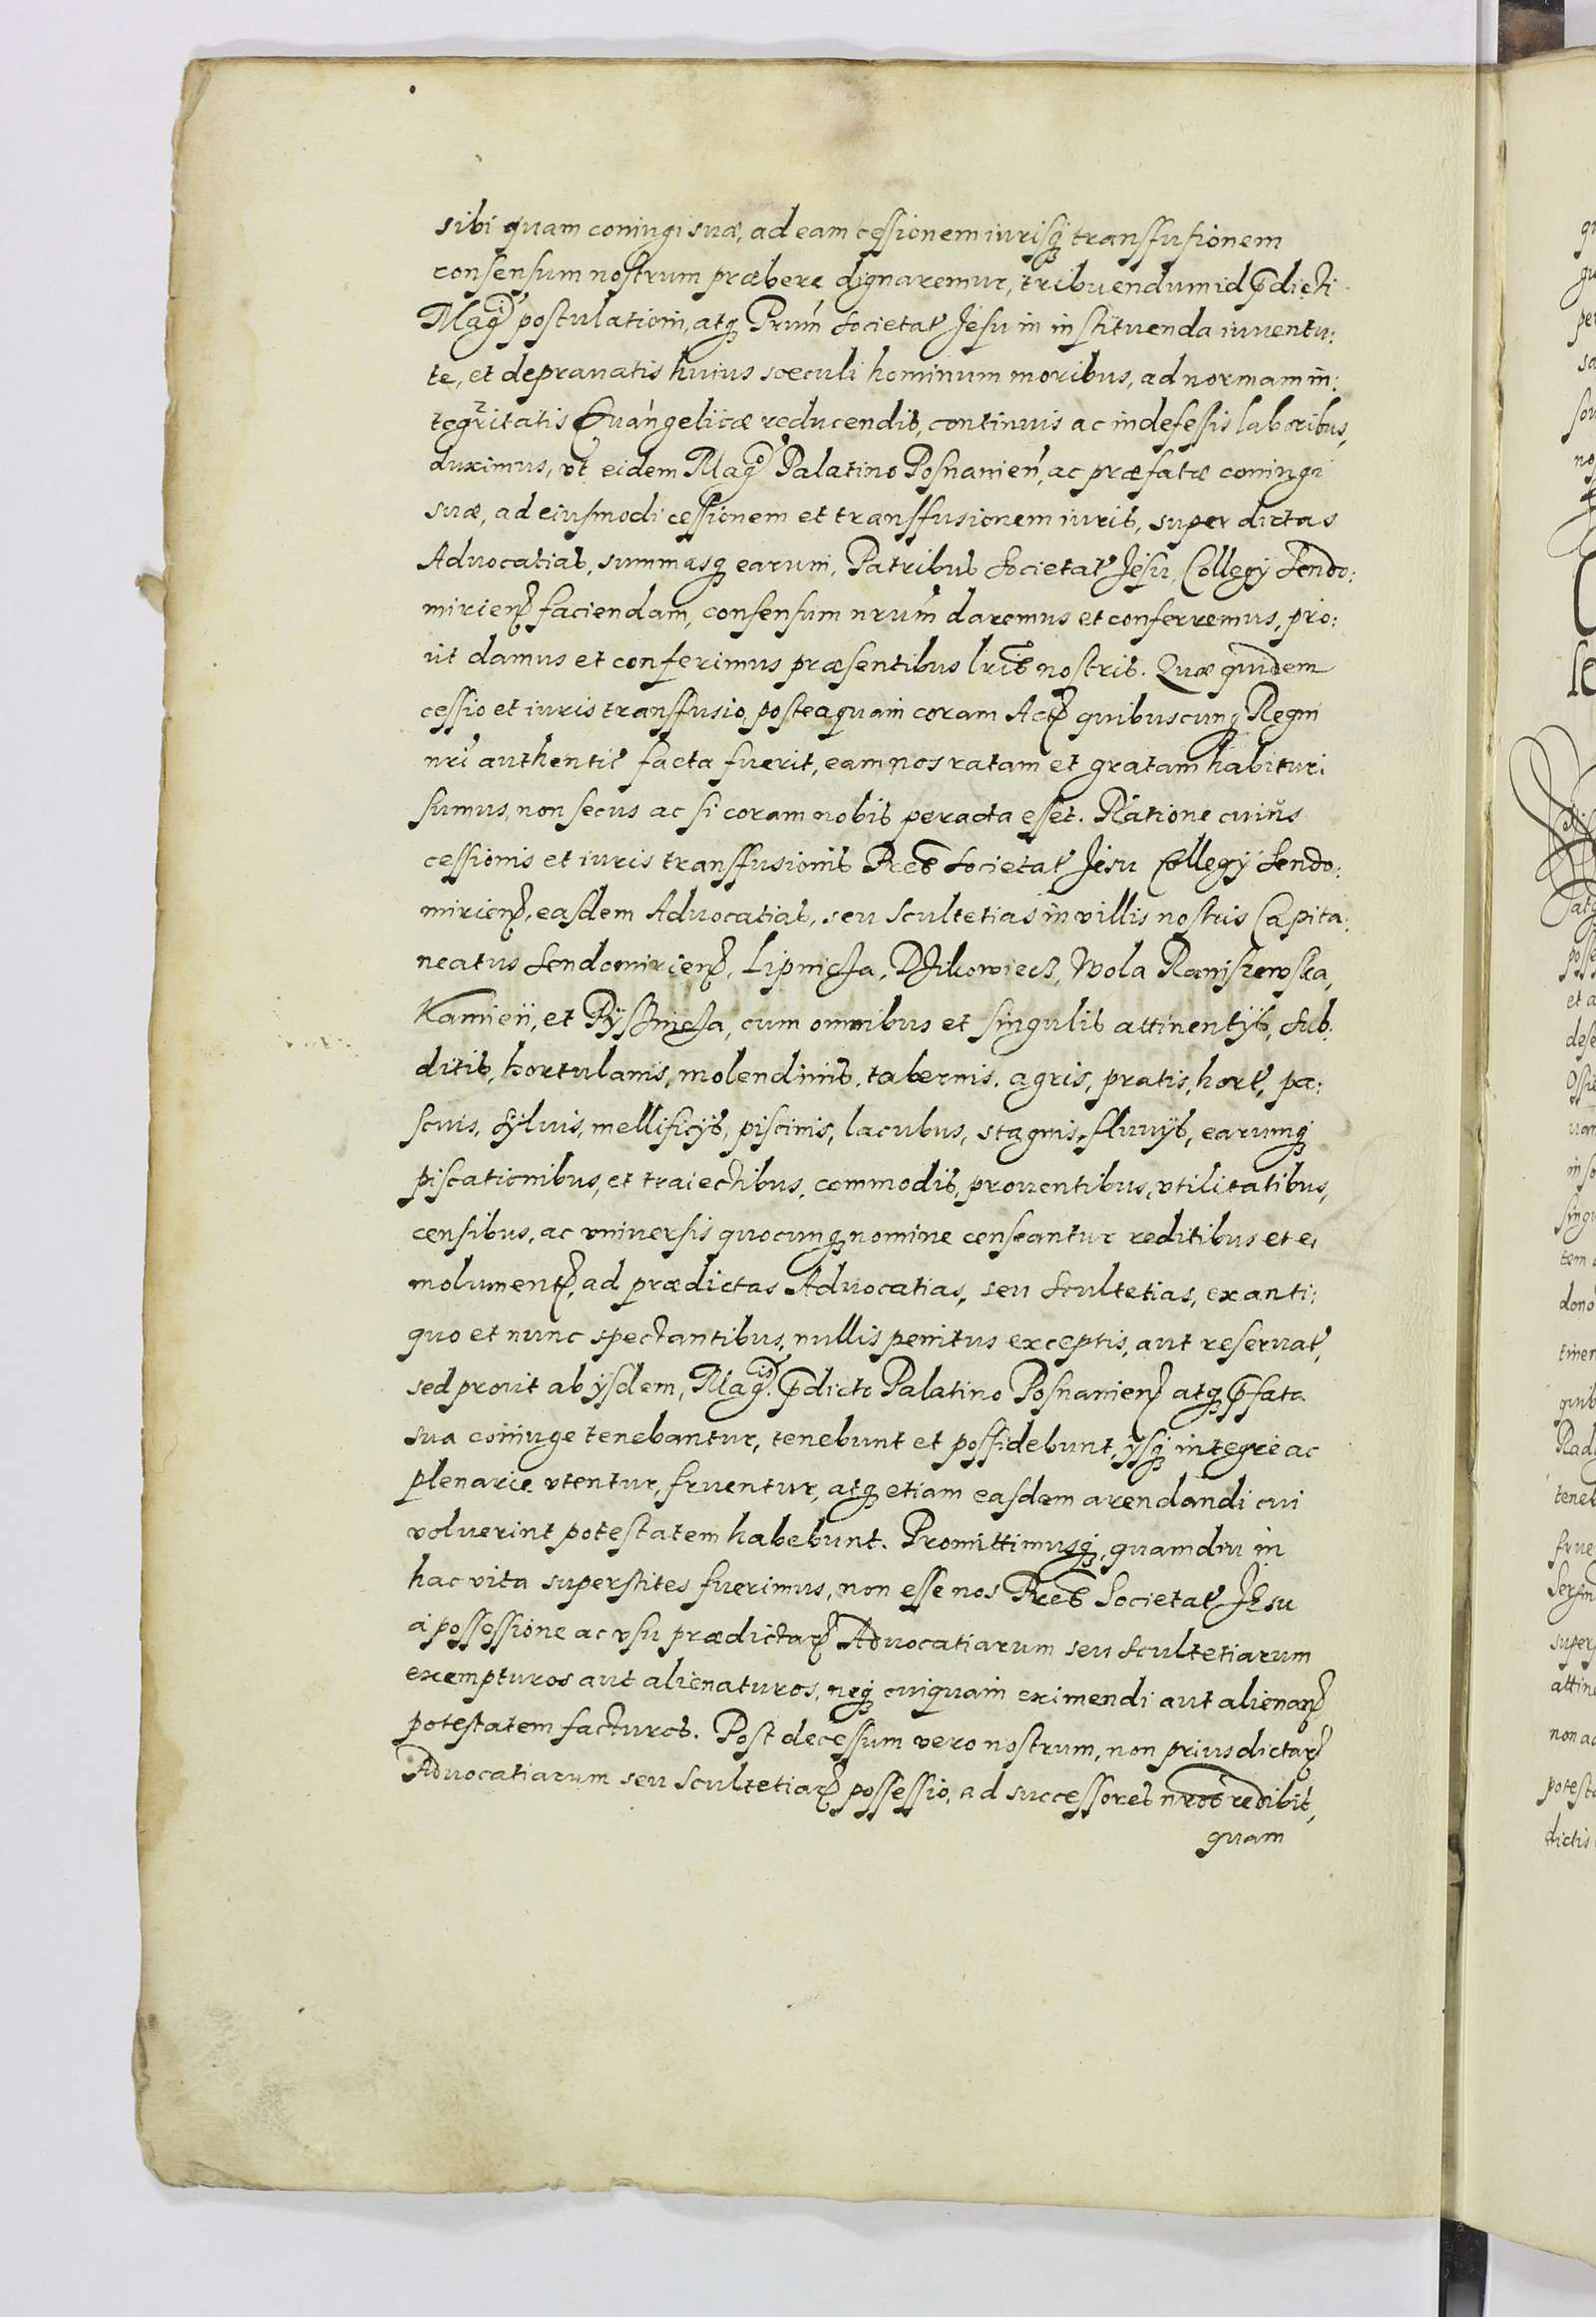 sibi quam coniugi suæ, ad eam cessionem iurisq́ transfusionem
consensum nostrum præbere dignaremur, tribuendum id p̄dicti
Magci postulationi, atq́ Prum̃ Societat Jesu in instituenda iuuentu:
te, et deprauatis huius sæculi hominum moribus, ad normam in:
tegritatis Euangelicæ reducendis, continuis ac indefessis laboribus,
duximus, vt eidem Magco Palatino Posnanien̄, ac præfatæ coniugi
suæ, ad eiusmodi cessionem et transfusionem iuris, super dictas
Aduocatias, summasq́ earum, Patribus Societat Jesu, Collegÿ Sendo:
mirien̄ faciendam, consensum nrum̃ daremus et conferremus, pro:
ut damus et conferimus præsentibus lris̃ nostris. Quæ quidem
cessio et iuris transfusio, posteaquam coram Act quibuscunq́ Regni
nri̇̃ authentic facta fuerit, eam nos ratam et gratam habituri
sumus, non secus ac si coram nobis peracta esset. Ratione cuius
cessionis et iuris transfusionis Pres̃ Societat Jesu Collegÿ Sendo:
mirien̄, easdem Aduocatias, seu Scultetias in villis nostris Capita:
neatus Sendomirien̄, Lipnicza, Dzikowiecz, Wola Raniszewska,
Kamień, et Pÿsznicza, cum omnibus et singulis attinentÿs, sub:
ditis, hortulanis, molendinis, tabernis, agris, pratis, hort, pa:
scuis, sÿluis, mellificÿs, piscinis, lacubus, stagnis, fluuÿs, earumq́
piscationibus, et traiectibus, commodis, prouentibus, vtilitatibus,
censibus, ac vniuersis quocunq́ nomine censeantur reditibus et e:
molument, ad prædictas Aduocatias, seu Scultetias, ex anti:
quo et nunc spectantibus, nullis penitus exceptis, aut reseruat,
sed prout ab ÿsdem, Magco. p̄dicto Palatino Posnanien̄ atq́ p̄fata
sua coniuge tenebantur, tenebunt et possidebunt, ÿsq́ integre ac
plenarie vtentur, fruentur, atq́ etiam easdem arendandi cui
voluerint potestatem habebunt. Promittimusq́, quamdiu in
hac vita superstites fuerimus, non esse nos Pres̃ Societat Jesu
à possessione ac vsu prædictar̄ Aduocatiarum seu Scultetiarum
exempturos aut alienaturos, neq́ cuiquam eximendi aut alienan̄
potestatem facturos. Post decessum vero nostrum, non prius dictar̄
Aduocatiarum seu Scultetiar̄ possessio, ad successores nros̃ redibit,
quam